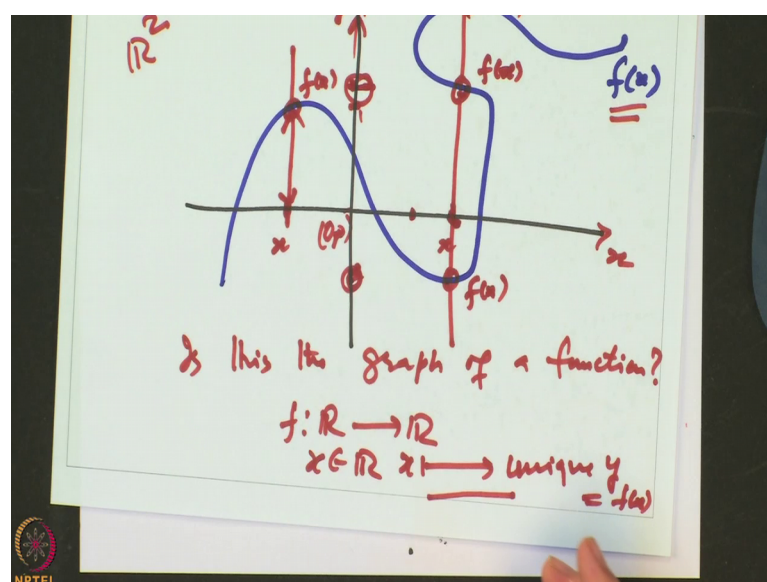 ℝ²
f(x)
f(x)
f(x)
x
(0,0)
x
x
f(x)
Is this the graph of a function?
f: ℝ ⟶ ℝ
x ∈ ℝ x ⟼ unique y
= f(x)
NPTEL